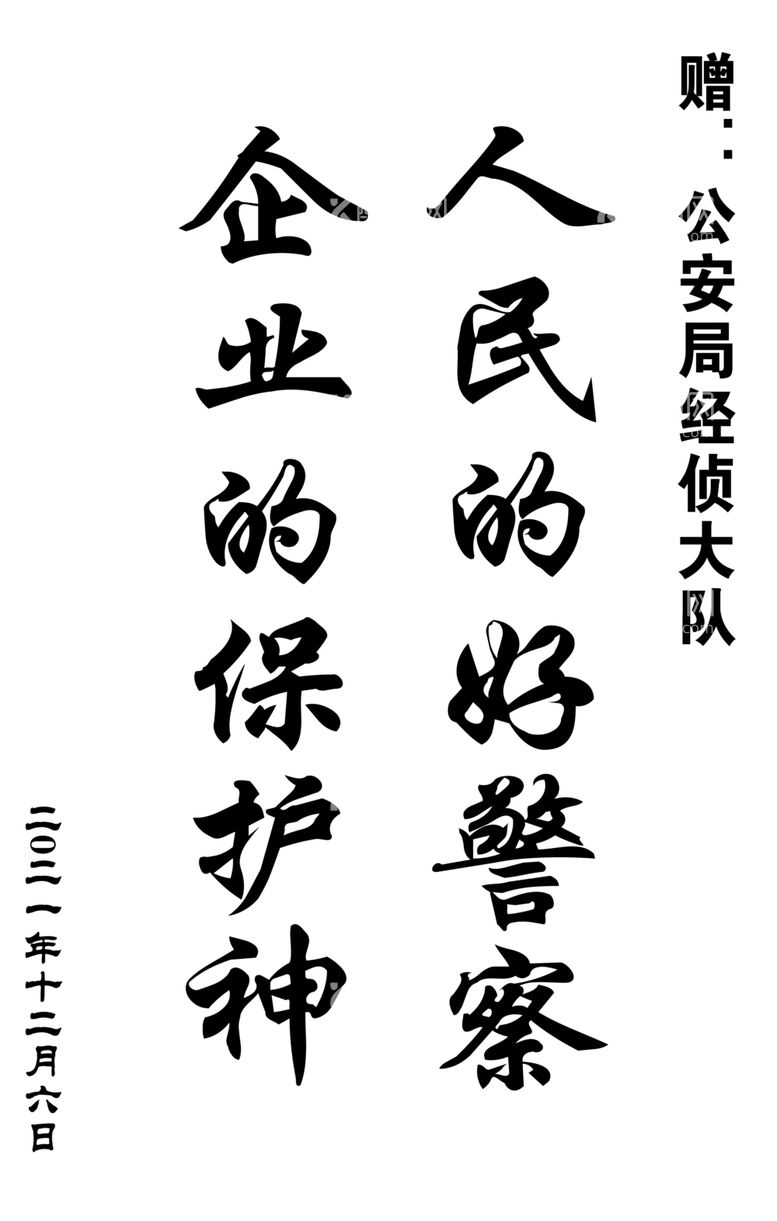 赠：公安局经侦大队
人民的好警察
企业的保护神
二0二一年十二月六日